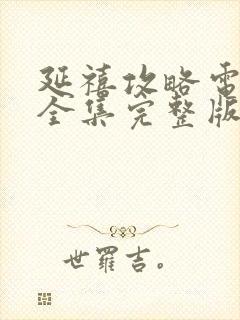 延禧攻略電
全集完整版
世羅吉。